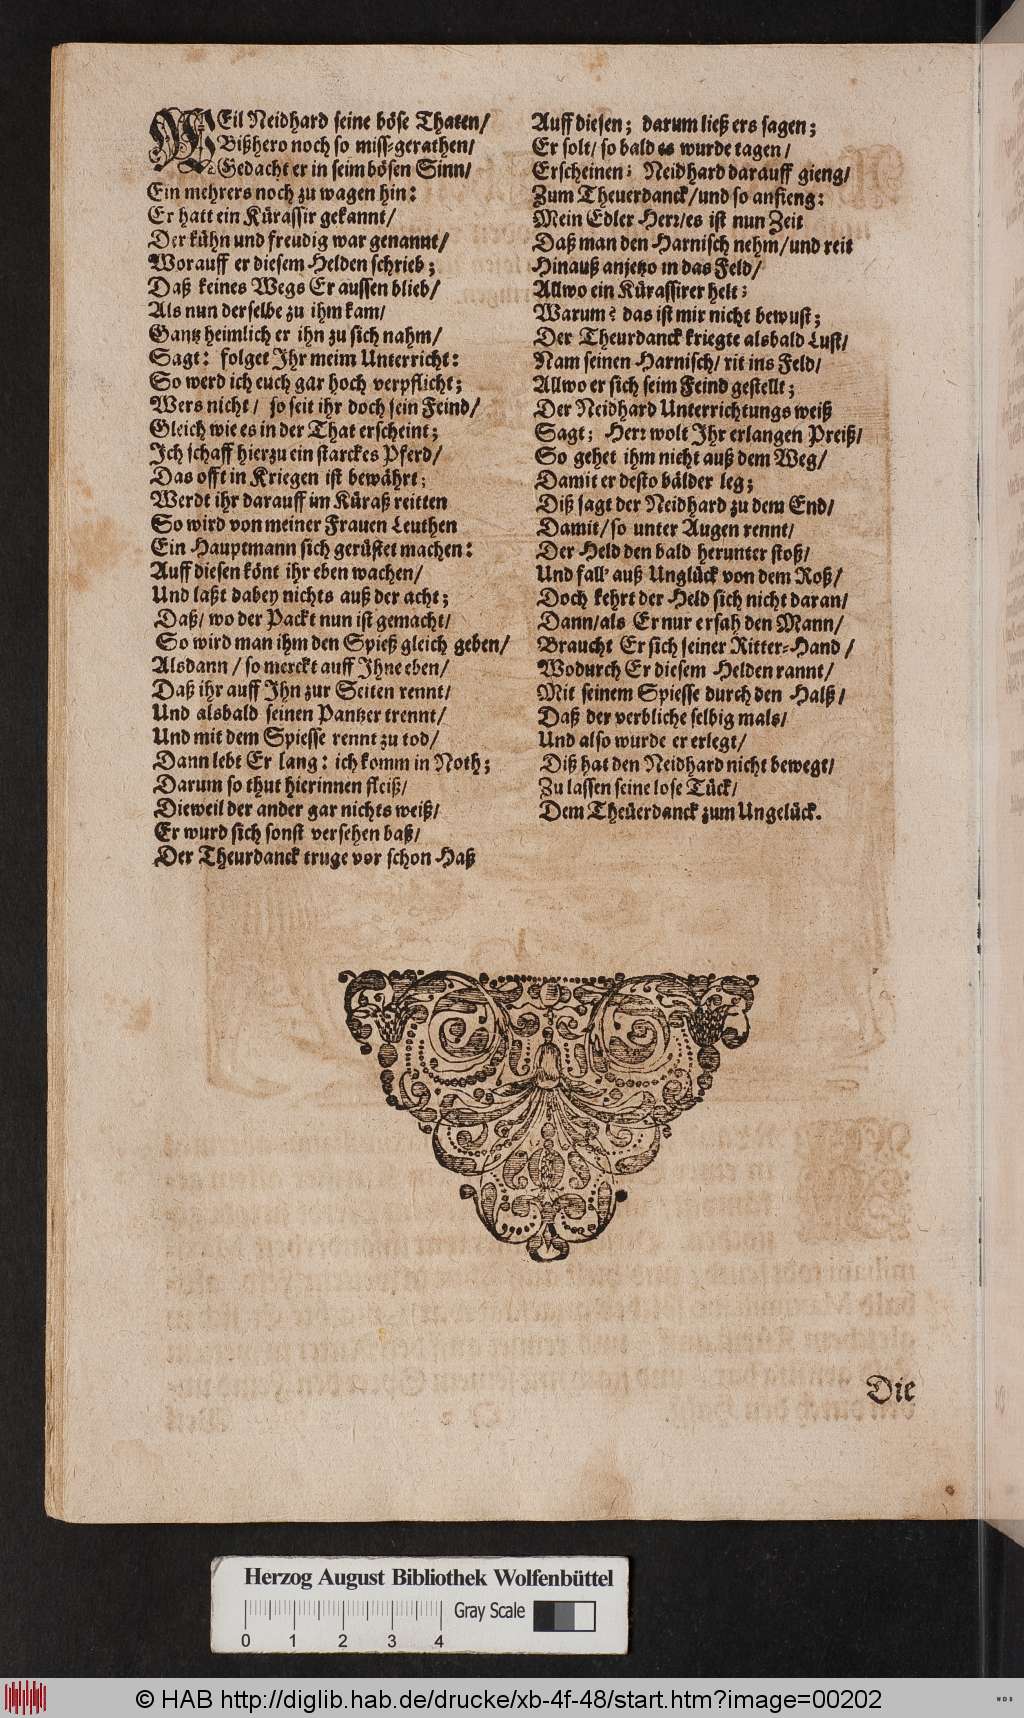 WEil Neidhard seine böse Thaten/
Bißhero noch so miss-gerathen/
Gedacht er in seim bösen Sinn/
Ein mehrers noch zu wagen hin:
Er hatt ein Kürassir gekannt/
Der kühn und freudig war genannt/
Worauff er diesem Helden schrieb;
Daß keines Wegs Er aussen blieb/
Als nun derselbe zu ihm kam/
Gantz heimlich er ihn zu sich nahm/
Sagt: folget Ihr meim Unterricht:
So werd ich euch gar hoch verpflicht;
Wers nicht/ so seit ihr doch sein Feind/
Gleich wie es in der That erscheint;
Ich schaff hierzu ein starckes Pferd/
Das offt in Kriegen ist bewährt;
Werdt ihr darauff im Küraß reitten
So wird von meiner Frauen Leuthen
Ein Hauptmann sich gerüstet machen:
Auff diesen könt ihr eben wachen/
Und laßt dabey nichts auß der acht;
Daß/ wo der Packt nun ist gemacht/
So wird man ihm den Spieß gleich geben/
Alsdann/ so merckt auff Ihne eben/
Daß ihr auff Ihn zur Seiten rennt/
Und alsbald seinen Pantzer trennt/
Und mit dem Spiesse rennt zu tod/
Dann lebt Er lang: ich komm in Noth;
Darum so thut hierinnen fleiß/
Dieweil der ander gar nichts weiß/
Er wurd sich sonst versehen baß/
Der Theurdanck truge vor schon Haß
Auff diesen; darum ließ ers sagen;
Er solt/ so bald es wurde tagen/
Erscheinen; Neidhard darauff gieng/
Zum Theuerdanck/und so anfieng:
Mein Edler Herr/es ist nun Zeit
Daß man den Harnisch nehm/und reit
Hinauß anjetzo in das Feld/
Allwo ein Kürassirer helt;
Warum? das ist mir nicht bewust;
Der Theurdanck kriegte alsbald Lust/
Nam seinen Harnisch/ rit ins Feld/
Allwo er sich seim Feind gestellt;
Der Neidhard Unterrichtungs weiß
Sagt; Herr wolt Ihr erlangen Preiß/
So gehet ihm nicht auß dem Weg/
Damit er desto bälder leg;
Diß sagt der Neidhard zu dem End/
Damit/ so unter Augen rennt/
Der Held den bald herunter stoß/
Und fall' auß Unglück von dem Roß/
Doch kehrt der Held sich nicht daran/
Dann/als Er nur ersah den Mann/
Braucht Er sich seiner Ritter-Hand/
Wodurch Er diesem Helden rannt/
Mit seinem Spiesse durch den Halß/
Daß der verbliche selbig mals/
Und also wurde er erlegt/
Diß hat den Neidhard nicht bewegt/
Zu lassen seine lose Tück/
Dem Theüerdanck zum Ungelück.
Die
Herzog August Bibliothek Wolfenbüttel
Gray Scale
0 1 2 3 4
© HAB http://diglib.hab.de/drucke/xb-4f-48/start.htm?image=00202